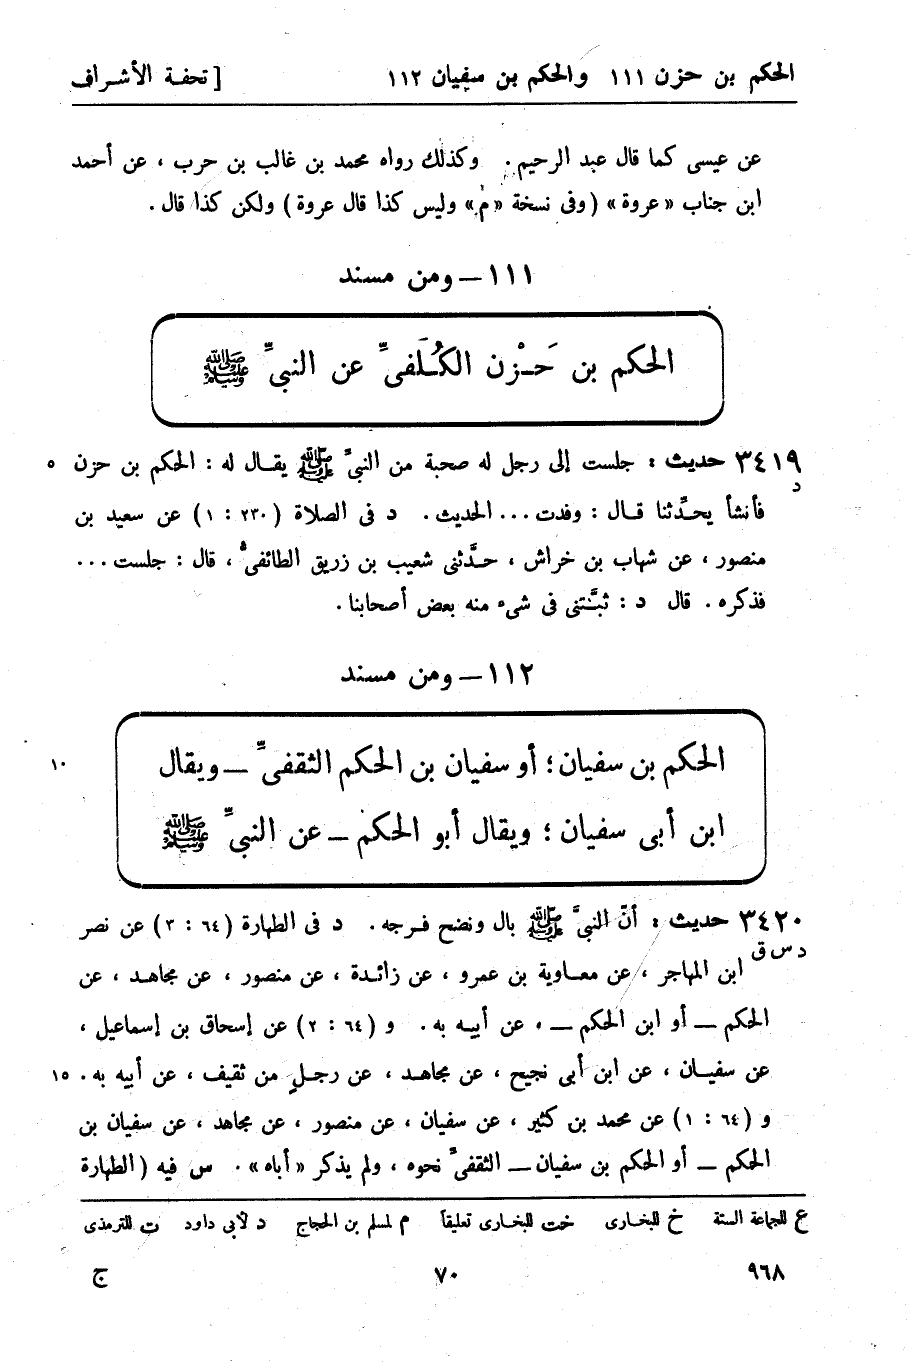 الحكم بن حزن ١١١ والحكم بن سفيان ١١٢ [ تحفـة الأشـراف
عن عيسى كما قال عبد الرحيم . وكذلك رواه محمد بن غالب بن حرب ، عن أحمد
ابن جناب « عروة » ( وفى نسخة « م » وليس كذا قال عروة ) ولكن كذا قال .
١١١ — ومن مسند
الحكم بن حَـزْن الكُـلَفىِّ عن النبىِّ ﷺ
٣٤١٩ حديث : جلست إلى رجل له صحبة من النبىِّ ﷺ يقـال له : الحكم بن حزن ٥
د
فأنشأ يحـدِّثنا قـال : وفدت ... الحديث . د فى الصلاة ( ٢٣٠ : ١ ) عن سعيد بن
منصور ، عن شهاب بن خراش ، حـدَّثنى شعيب بن زريق الطائفىُّ ، قال : جلست ...
فذكره . قال د : ثبَّـتنى فى شىء منه بعض أصحابنا .
١١٢ — ومن مسند
الحكم بن سفيان ؛ أو سفيان بن الحكم الثقفىِّ — ويقال ١٠
ابن أبى سفيان ؛ ويقال أبو الحكم — عن النبىِّ ﷺ
٣٤٢٠ حديث : أنّ النبىَّ ﷺ بال ونضح فـرجه . د فى الطهارة ( ٦٤ : ٣ ) عن نصر
د س ق
ابن المهاجر ، عن معـاوية بن عمرو ، عن زائـدة ، عن منصور ، عن مجاهـد ، عن
الحكم — أو ابن الحكم — ، عن أبيـه به . و ( ٦٤ : ٢ ) عن إسحاق بن إسماعيل ،
عن سفيــان ، عن ابن أبى نجيح ، عن مجاهـد ، عن رجـلٍ من ثقيف ، عن أبيه به . ١٥
و ( ٦٤ : ١ ) عن محمد بن كثير ، عن سفيان ، عن منصور ، عن مجاهد ، عن سفيان بن
الحكم — أو الحكم بن سفيان — الثقفىِّ نحوه ، ولم يذكر « أباه » . س فيه ( الطهارة
ع للجماعة الستة خ للبخارى خت للبخارى تعليقاً م لمسلم بن الحجاج د لأبى داود ت للترمذى
٩٦٨ ٧٠ ج